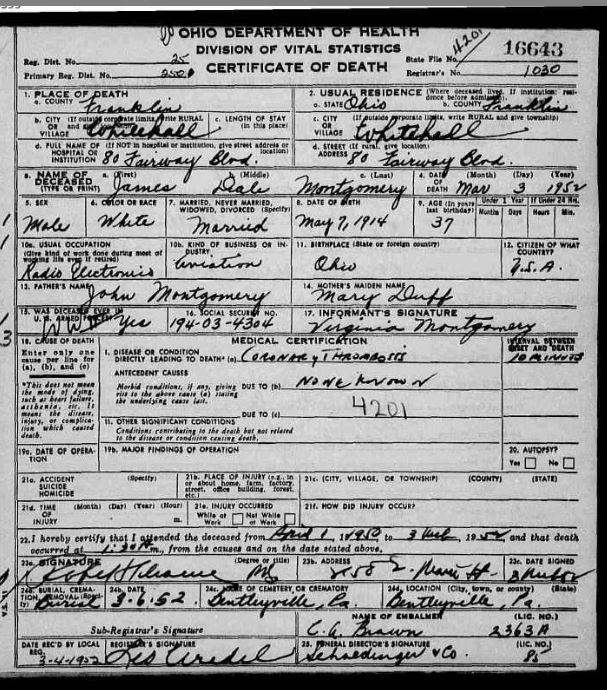 OHIO DEPARTMENT OF HEALTH
DIVISION OF VITAL STATISTICS
CERTIFICATE OF DEATH
4201
16643
Reg. Dist. No. 25
State File No.
Primary Reg. Dist. No. 2501
Registrar's No. 1030
1. PLACE OF DEATH
a. COUNTY Franklin
2. USUAL RESIDENCE (Where deceased lived. If institution: residence before admission).
a. STATE Ohio b. COUNTY Franklin
b. CITY (If outside corporate limits, write RURAL OR and VILLAGE Whitehall
c. LENGTH OF STAY (in this place)
c. CITY (If outside corporate limits, write RURAL and give township) OR VILLAGE Whitehall
d. FULL NAME OF (If NOT in hospital or institution, give street address or location) HOSPITAL OR INSTITUTION 80 Fairway Blvd.
d. STREET (If rural, give location) ADDRESS 80 Fairway Blvd.
3. NAME OF DECEASED (TYPE OR PRINT)
a. (First) James
b. (Middle) Dale
c. (Last) Montgomery
4. DATE OF DEATH (Month) (Day) (Year) Mar 3 1952
5. SEX Male
6. COLOR OR RACE White
7. MARRIED, NEVER MARRIED, WIDOWED, DIVORCED (Specify) Married
8. DATE OF BIRTH May 7, 1914
9. AGE (In years last birthday) 37
If Under 1 Year Months Days
If Under 24 Hrs. Hours Min.
10a. USUAL OCCUPATION (Give kind of work done during most of working life even if retired) Radio Electronics
10b. KIND OF BUSINESS OR INDUSTRY Aviation
11. BIRTHPLACE (State or foreign country) Ohio
12. CITIZEN OF WHAT COUNTRY? U.S.A.
13. FATHER'S NAME John Montgomery
14. MOTHER'S MAIDEN NAME Mary Duff
15. WAS DECEASED EVER IN U. S. ARMED FORCES? Yes
16. SOCIAL SECURITY NO. 194-03-4304
17. INFORMANT'S SIGNATURE Virginia Montgomery
18. CAUSE OF DEATH
Enter only one cause per line for (a), (b), and (c)
MEDICAL CERTIFICATION
INTERVAL BETWEEN ONSET AND DEATH
1. DISEASE OR CONDITION DIRECTLY LEADING TO DEATH* (a) CORONARY THROMBOSIS 10 MINUTES
*This does not mean the mode of dying, such as heart failure, asthenia, etc. It means the disease, injury, or complication which caused death.
ANTECEDENT CAUSES
Morbid conditions, if any, giving rise to the above cause (a) stating the underlying cause last.
DUE TO (b) NONE KNOWN
4201
DUE TO (c)
11. OTHER SIGNIFICANT CONDITIONS
Conditions contributing to the death but not related to the disease or condition causing death.
19a. DATE OF OPERATION
19b. MAJOR FINDINGS OF OPERATION
20. AUTOPSY?
Yes No
21a. ACCIDENT SUICIDE HOMICIDE (Specify)
21b. PLACE OF INJURY (e.g., in or about home, farm, factory, street, office building, forest, etc.)
21c. (CITY, VILLAGE, OR TOWNSHIP) (COUNTY) (STATE)
21d. TIME OF INJURY (Month) (Day) (Year) (Hour) m.
21e. INJURY OCCURRED While at Work Not While at Work
21f. HOW DID INJURY OCCUR?
22. I hereby certify that I attended the deceased from April 1, 1950 to 3 Mch, 1952 and that death
occurred at 1:30 A m., from the causes and on the date stated above.
23a. SIGNATURE (Degree or title) MD
23b. ADDRESS
23c. DATE SIGNED
24a. BURIAL, CREMATION, REMOVAL (Specify) Burial
24b. DATE 3-6-52
24c. NAME OF CEMETERY OR CREMATORY Bentleyville, Pa.
24d. LOCATION (City, town, or county) (State) Bentleyville, Pa.
Sub-Registrar's Signature
NAME OF EMBALMER C. A. Brown
(LIC. NO.) 2363A
DATE REC'D BY LOCAL REG. 3-4-1952
REGISTRAR'S SIGNATURE
25. FUNERAL DIRECTOR'S SIGNATURE Schoedinger & Co.
(LIC. NO.) 85